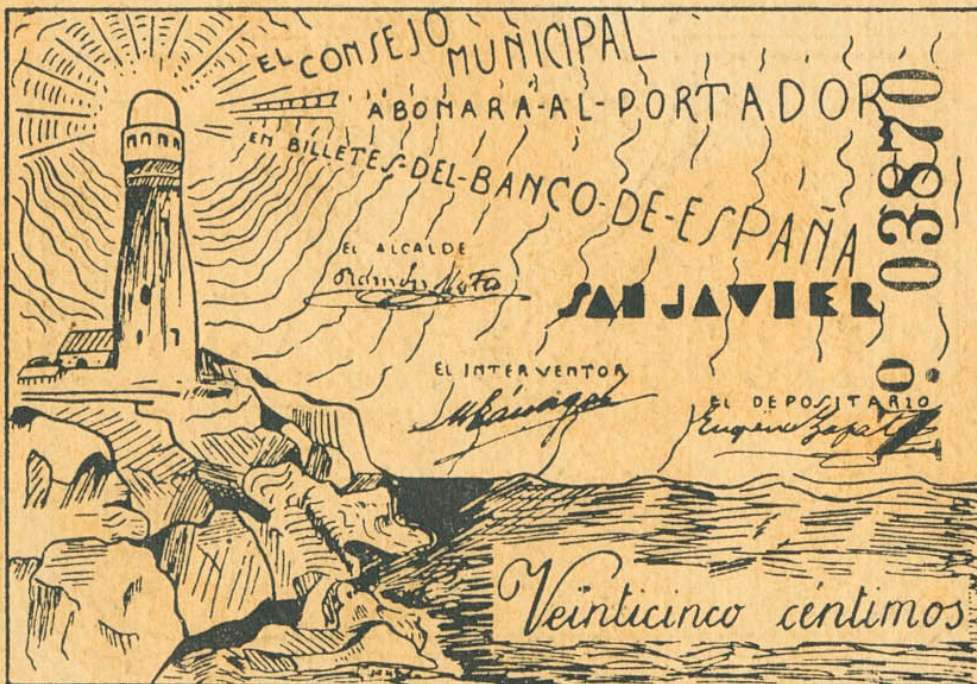 EL CONSEJO MUNICIPAL
ABONARÁ-AL-PORTADOR
EN BILLETES-DEL-BANCO-DE-ESPAÑA
EL ALCALDE
SAN JAVIER
EL INTERVENTOR
EL DEPOSITARIO
Eugenio Zapata
N.º 03870
Veinticinco céntimos